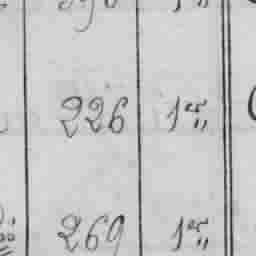 226 1er „
269 1er „